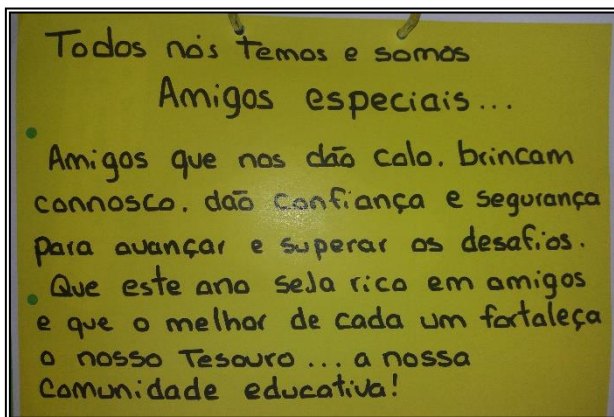 Todos nós temos e somos
Amigos especiais...
Amigos que nos dão colo. brincam
connosco. dão confiança e segurança
para avançar e superar os desafios.
Que este ano seja rico em amigos
e que o melhor de cada um fortaleça
o nosso Tesouro... a nossa
Comunidade educativa!